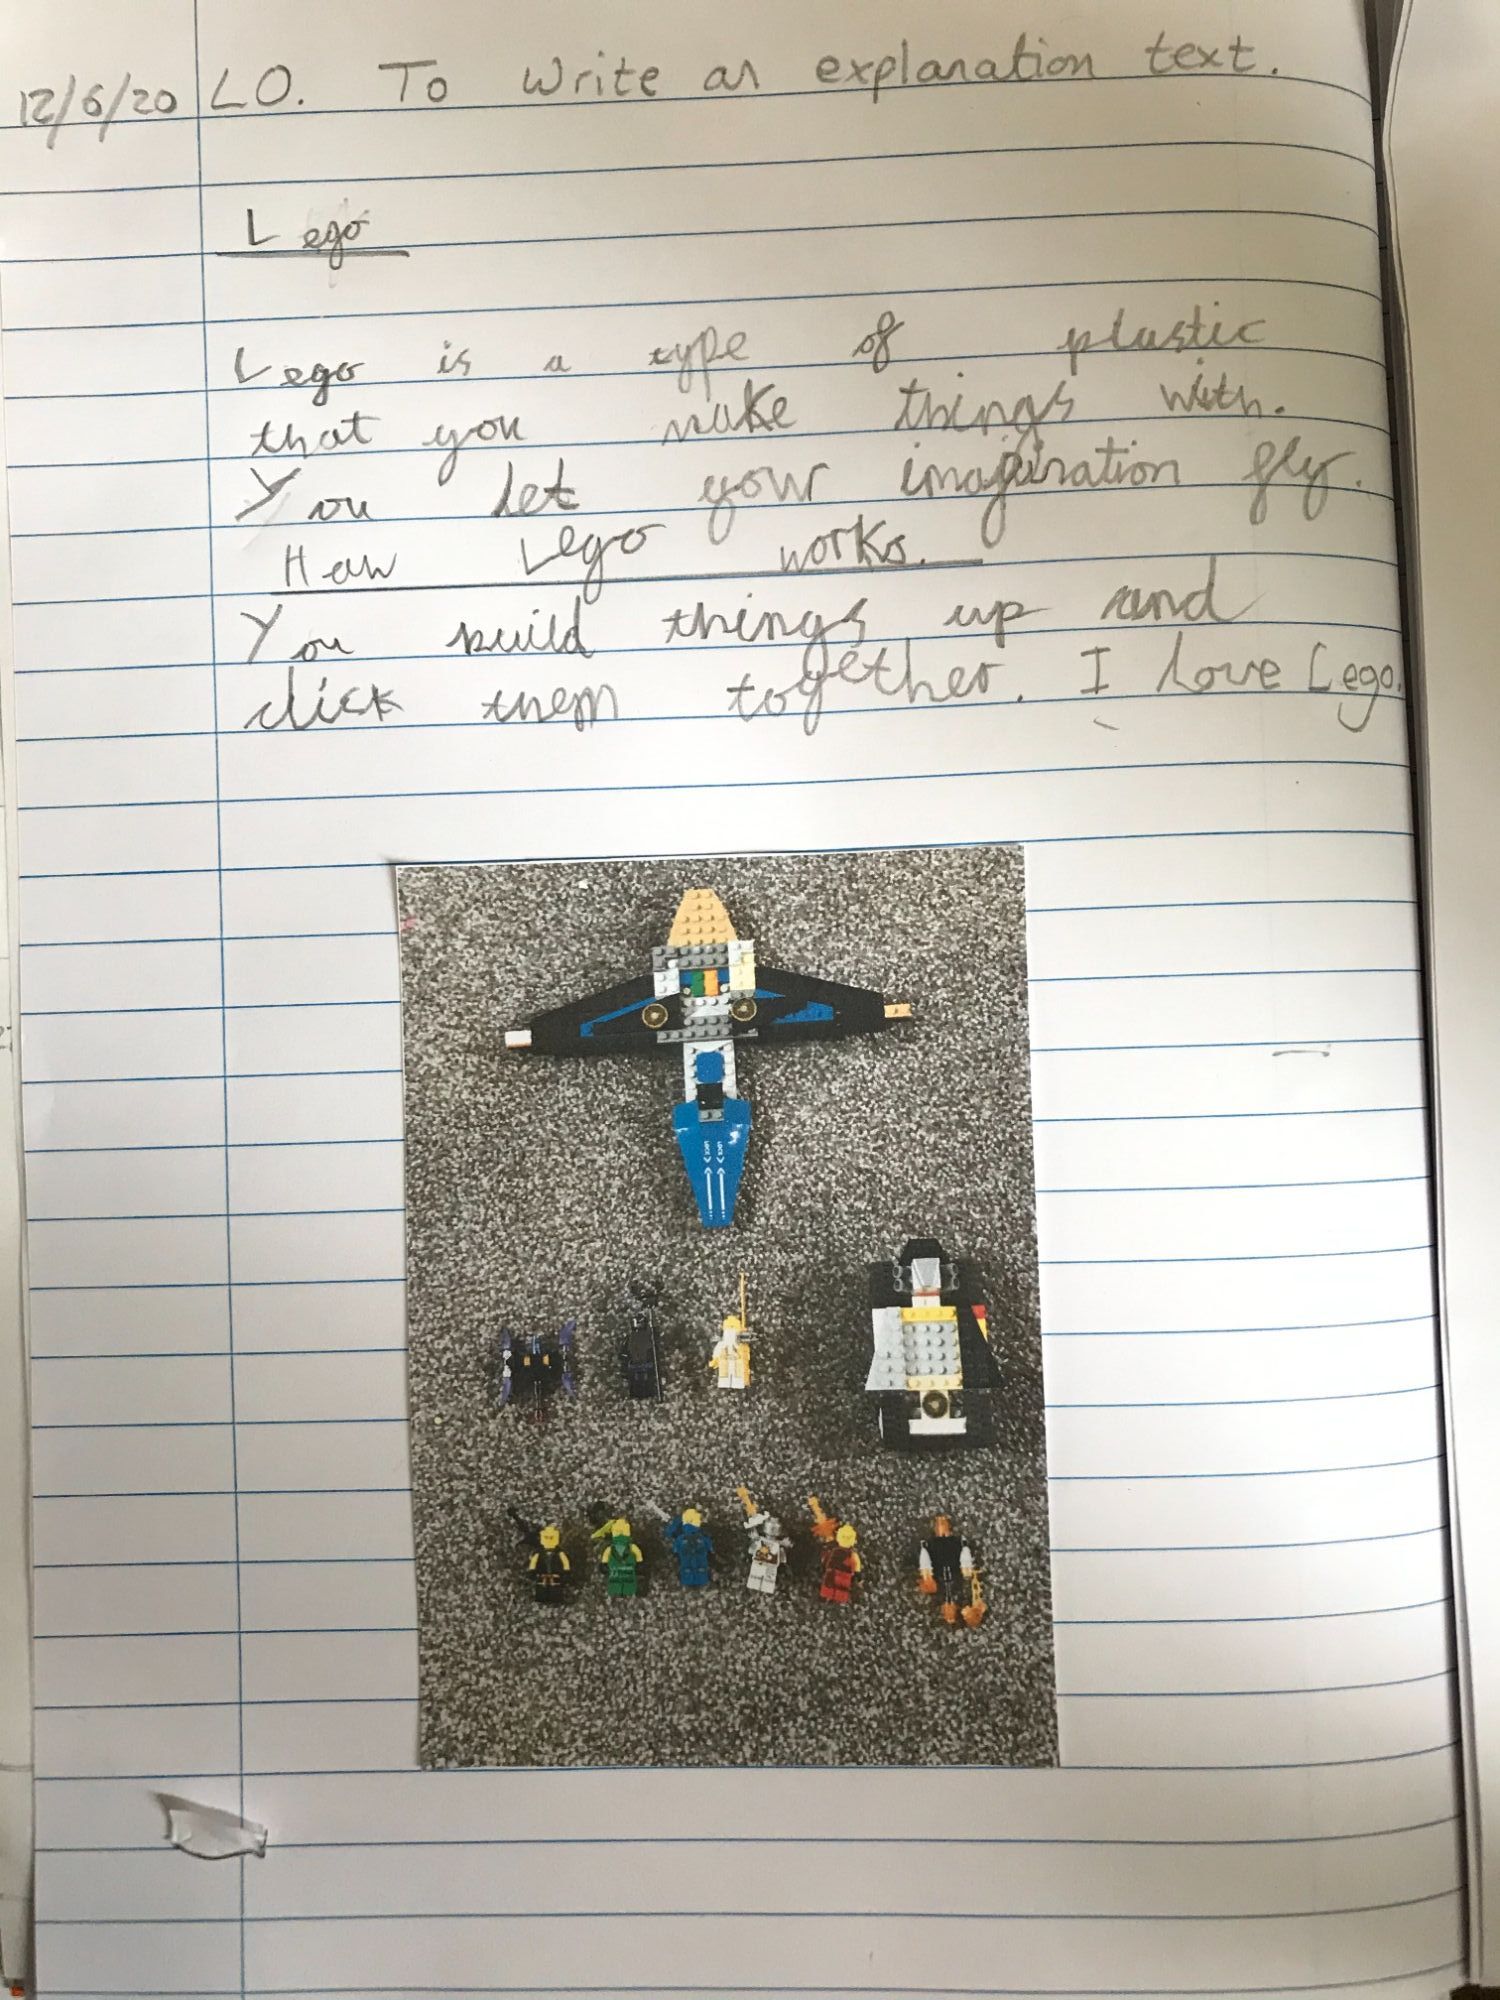 12/6/20 LO. To write an explanation text.
Lego
Lego is a type of plastic
that you make things with.
You let your imagination fly.
How Lego works.
You build things up and
click them together. I love Lego.